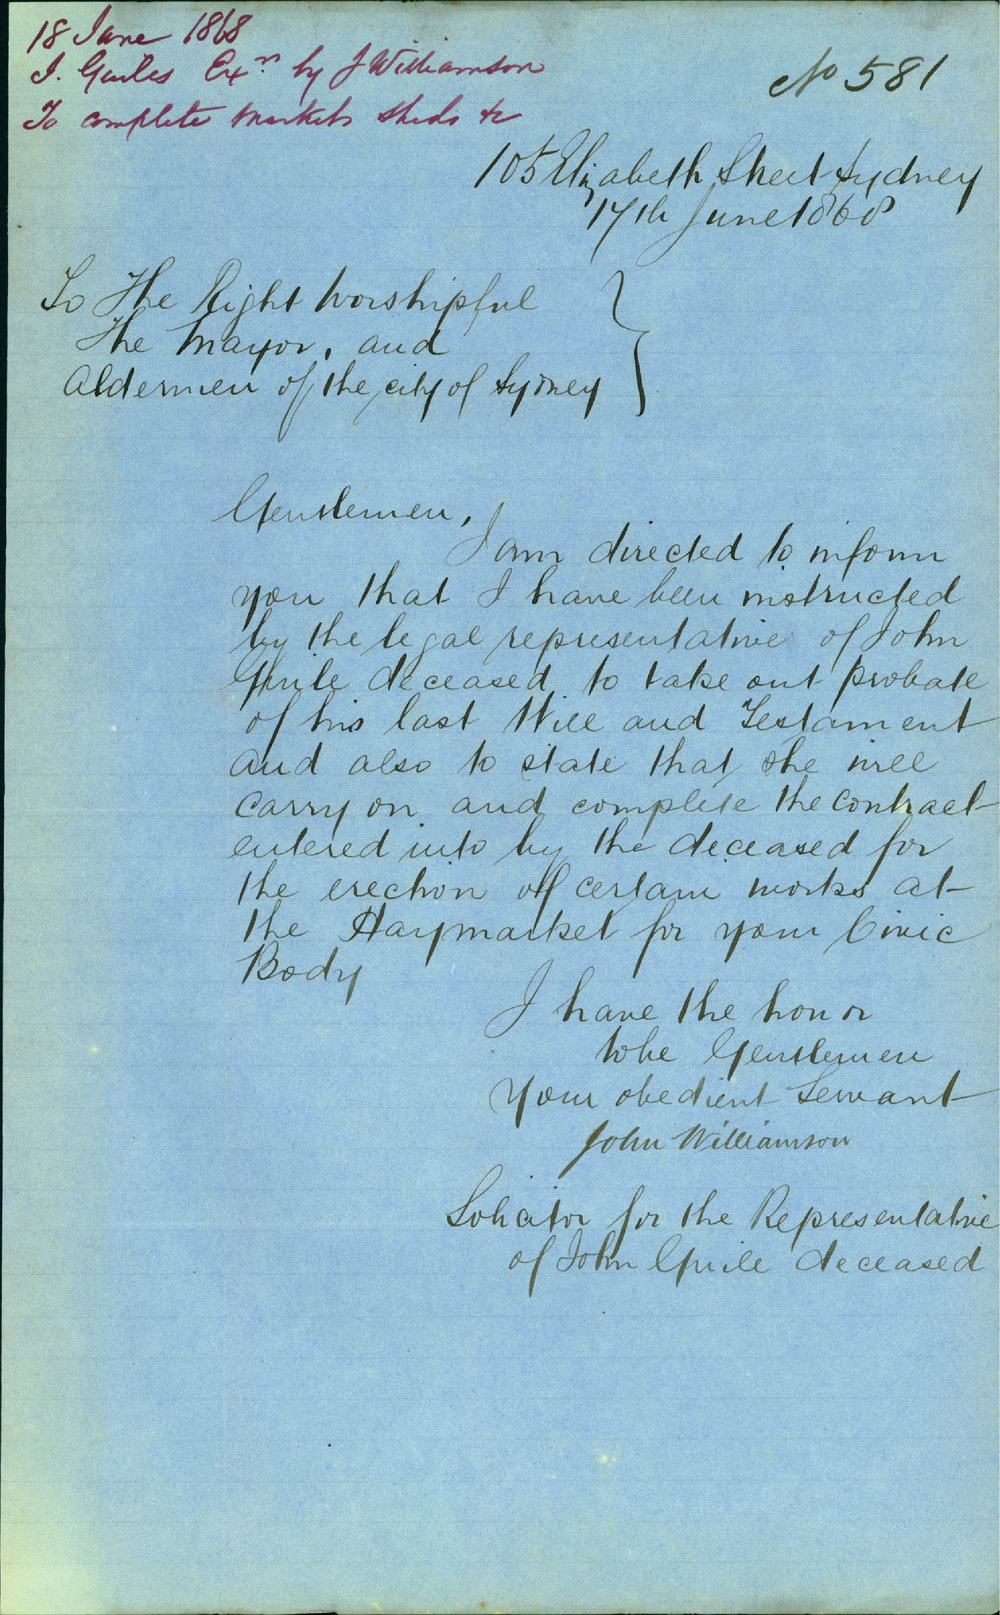 18 June 1868
J. Guiles Exn by J Williamson
To complete Markets Sheds &c
No 581
105 Elizabeth Street Sydney
17th June 1868
To The Right Worshipful
The Mayor, and
Aldermen of the city of Sydney
Gentlemen,
I am directed to inform
you that I have been instructed
by the legal representative of John
Guile deceased to take out probate
of his last Will and Testament
and also to state that she will
carry on and complete the contract
entered into by the deceased for
the erection of certain works at
the Haymarket for your Civic
Body
I have the honor
to be Gentlemen
Your obedient Servant
John Williamson
Solicitor for the Representative
of John Guile deceased